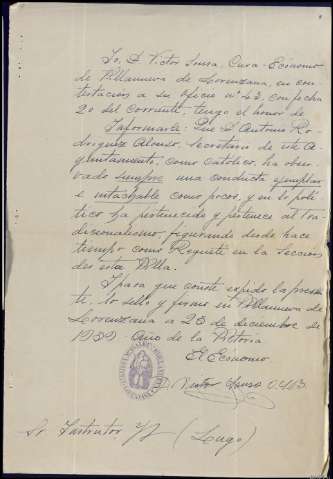 Yo, D. Victor Sousa, Cura-Ecónomo
de Villanueva de Lorenzana, en con-
testación a su oficio nº 43, con fecha
20 del corriente, tengo el honor de
Informarle: Que D. Antonio Ro-
driguez Alonso, Secretario de este A-
yuntamiento, como Católico, ha obser-
vado siempre una conducta ejemplar
e intachable como pocos, y en lo polí-
tico ha pertenecido y pertenece al Tra-
dicionalismo, figurando desde hace
tiempo como Requeté en la Sección
de esta Villa.
Y para que conste expido la presen-
te, lo sello y firmo en Villanueva de
Lorenzana a 25 de diciembre de
1939. Año de la Victoria
El Ecónomo
Victor Sousa
Sr. Instructor (Lugo)